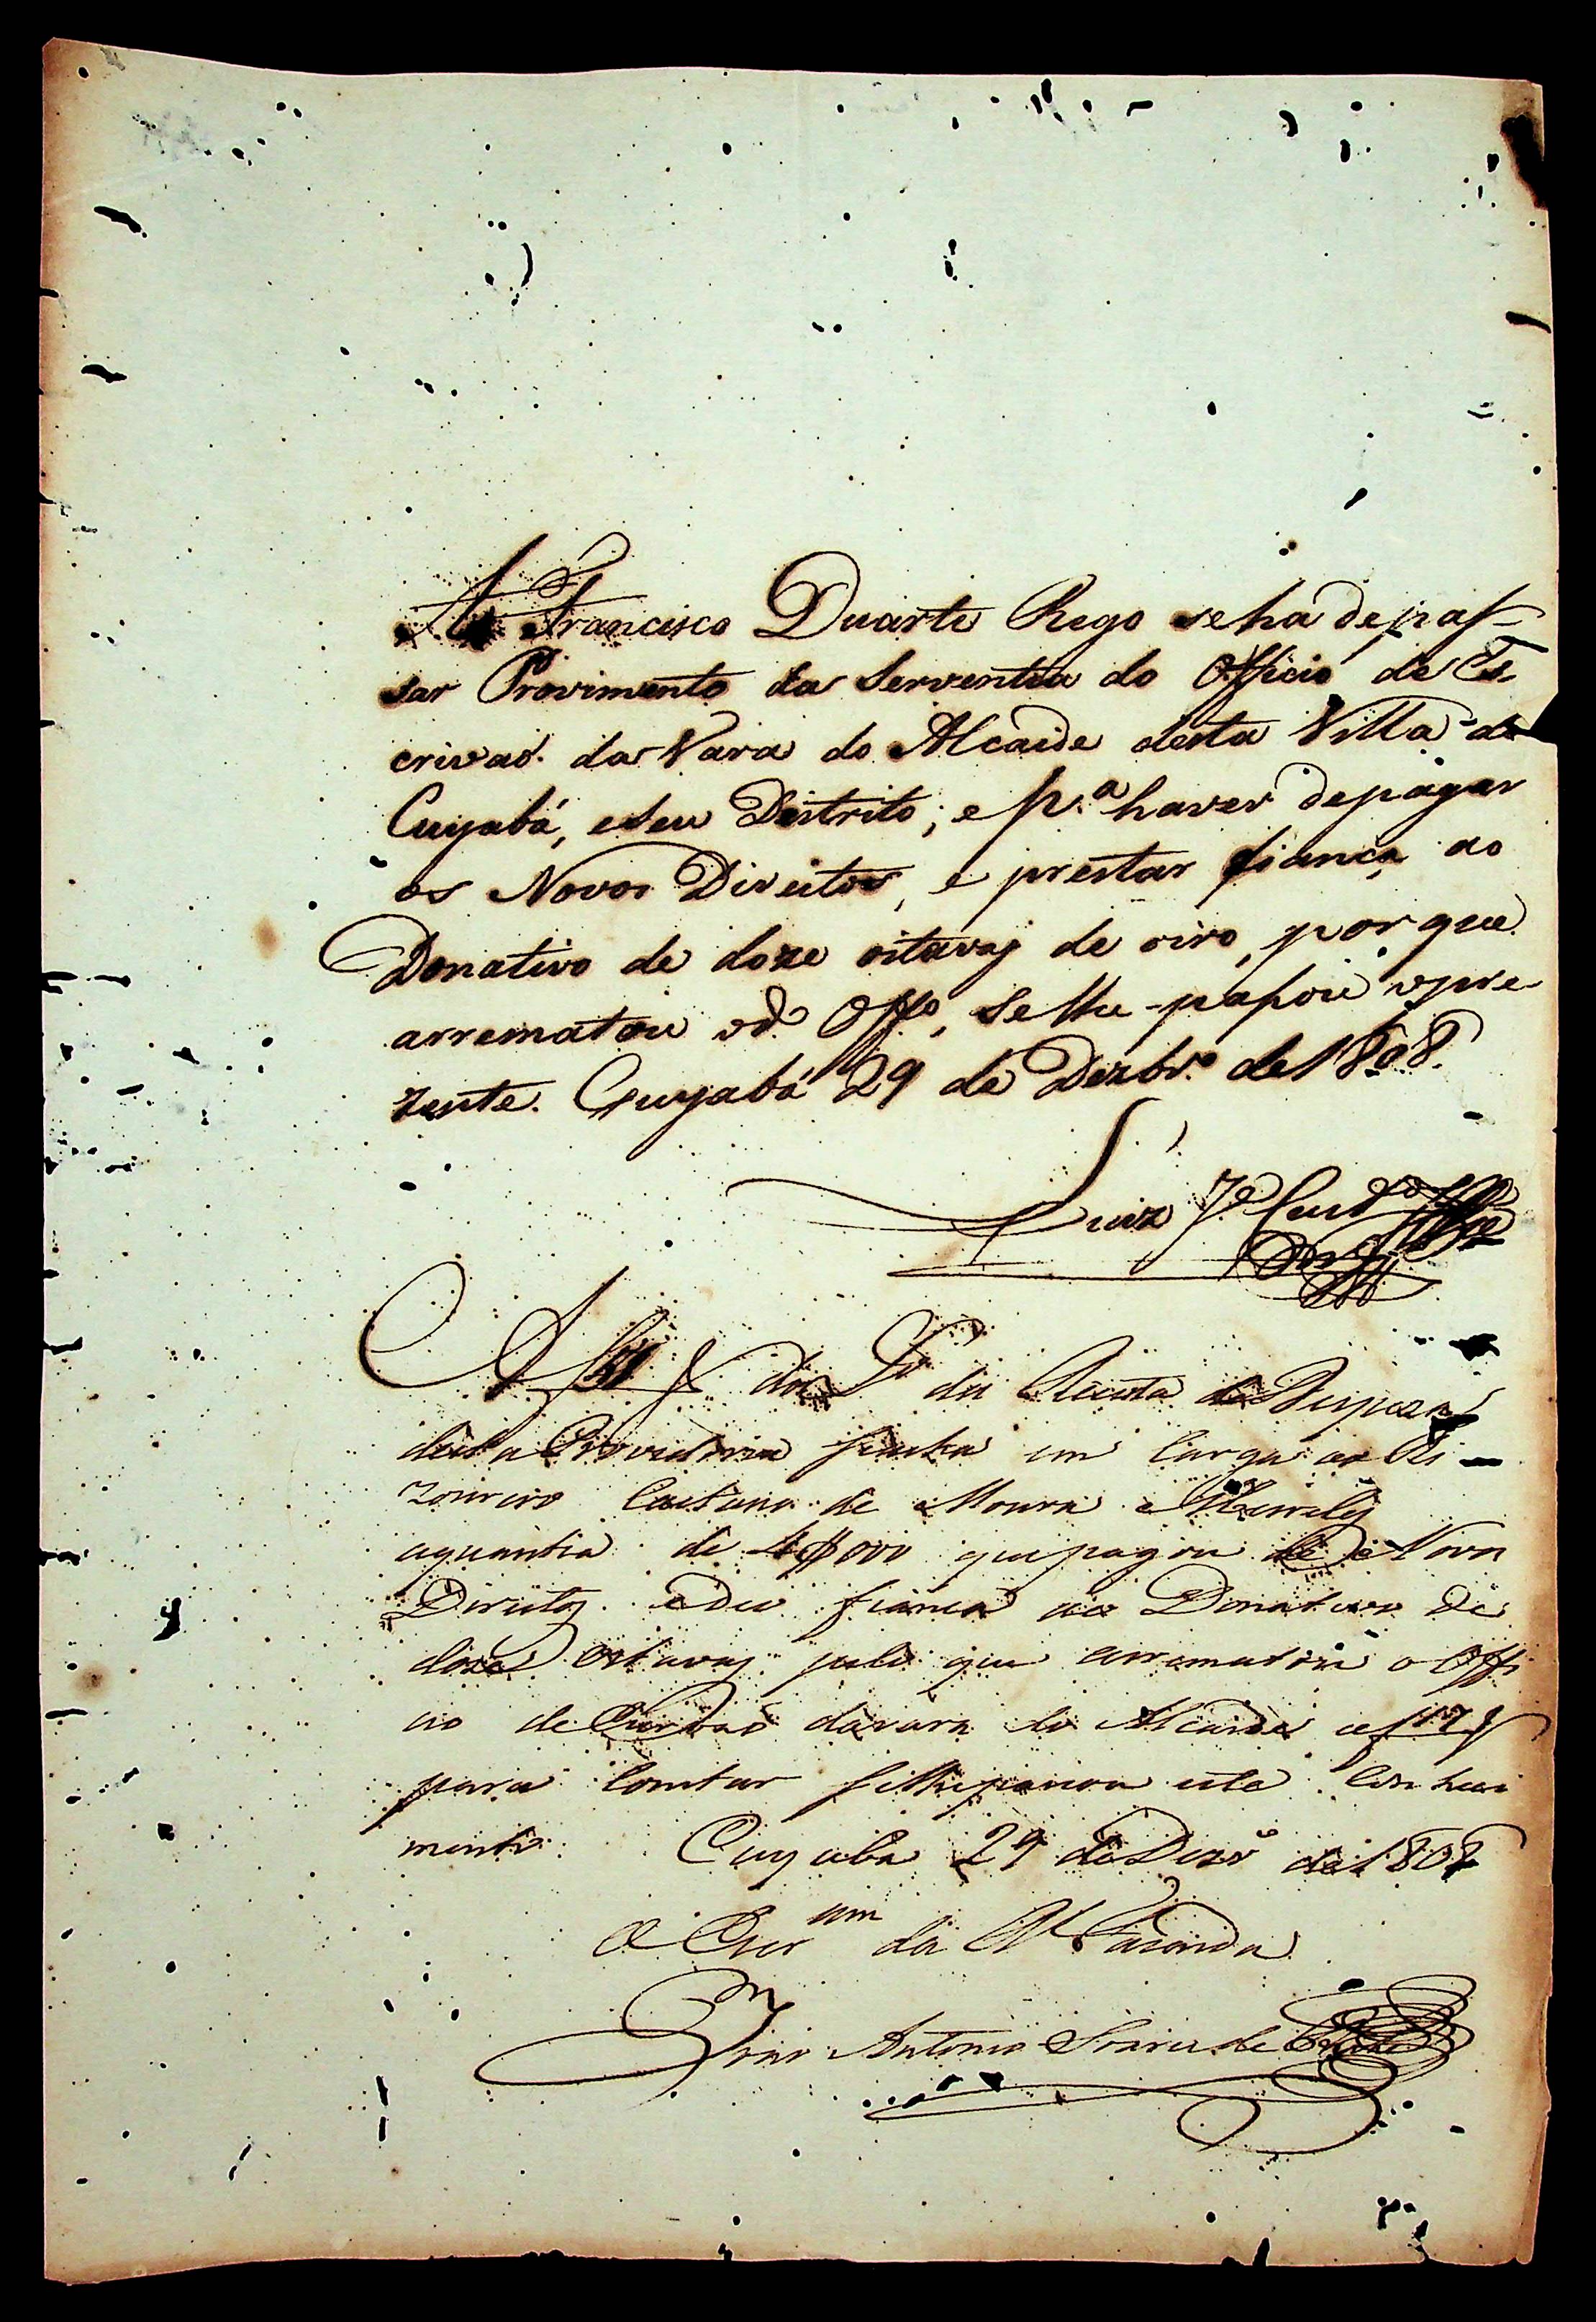 A Francisco Duarte Rego se ha de pas-
sar Provimento da Serventia do Officio de Es-
crivaõ da Vara do Alcaide desta Villa do
Cuyabá, e seu Distrito; e p.ª haver de pagar
os Novos Direitos, e prestar fiança ao
Donativo de doze oitavas de oiro, por que
arrematou o d.º Off.º, se lhe passou o pre-
zente. Cuyabá 29 de Dezbr.º de 1808.
Luiz
A f do L.º da Receita de Despeza
desta Provedoria fica em carga ao The-
zoureiro Caetano de Moura Meirelez
a quantia de 4$000 que pagou de Novos
Direitos e deu fiança ao Donativo de
doze oitavas pelo que arrematou o Offi
cio de Escrivaõ da vara do Alcaide a f
para constar se lhe passou este Conheci
mento. Cuyaba 29 de Dezr.º de 1808
O Escr.am da R. Fazenda
Antonio Soares de